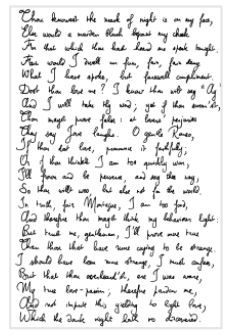 Thou knowest the mask of night is on my face,
Else would a maiden blush bepaint my cheek
For that which thou hast heard me speak tonight.
Fain would I dwell on form, fain, fain deny
What I have spoke, but farewell compliment.
Dost thou love me? I know thou wilt say "Ay",
And I will take thy word; yet if thou swear'st,
Thou mayst prove false: at lovers' perjuries
They say Jove laughs. O gentle Romeo,
If thou dost love, pronounce it faithfully;
Or if thou thinkest I am too quickly won,
I'll frown and be perverse, and say thee nay,
So thou wilt woo, but else not for the world.
In truth, fair Montague, I am too fond,
And therefore thou mayst think my behaviour light:
But trust me, gentleman, I'll prove more true
Than those that have more coying to be strange.
I should have been more strange, I must confess,
But that thou overheard'st, ere I was ware,
My true love-passion; therefore pardon me,
And not impute this yielding to light love,
Which the dark night hath so discovered.